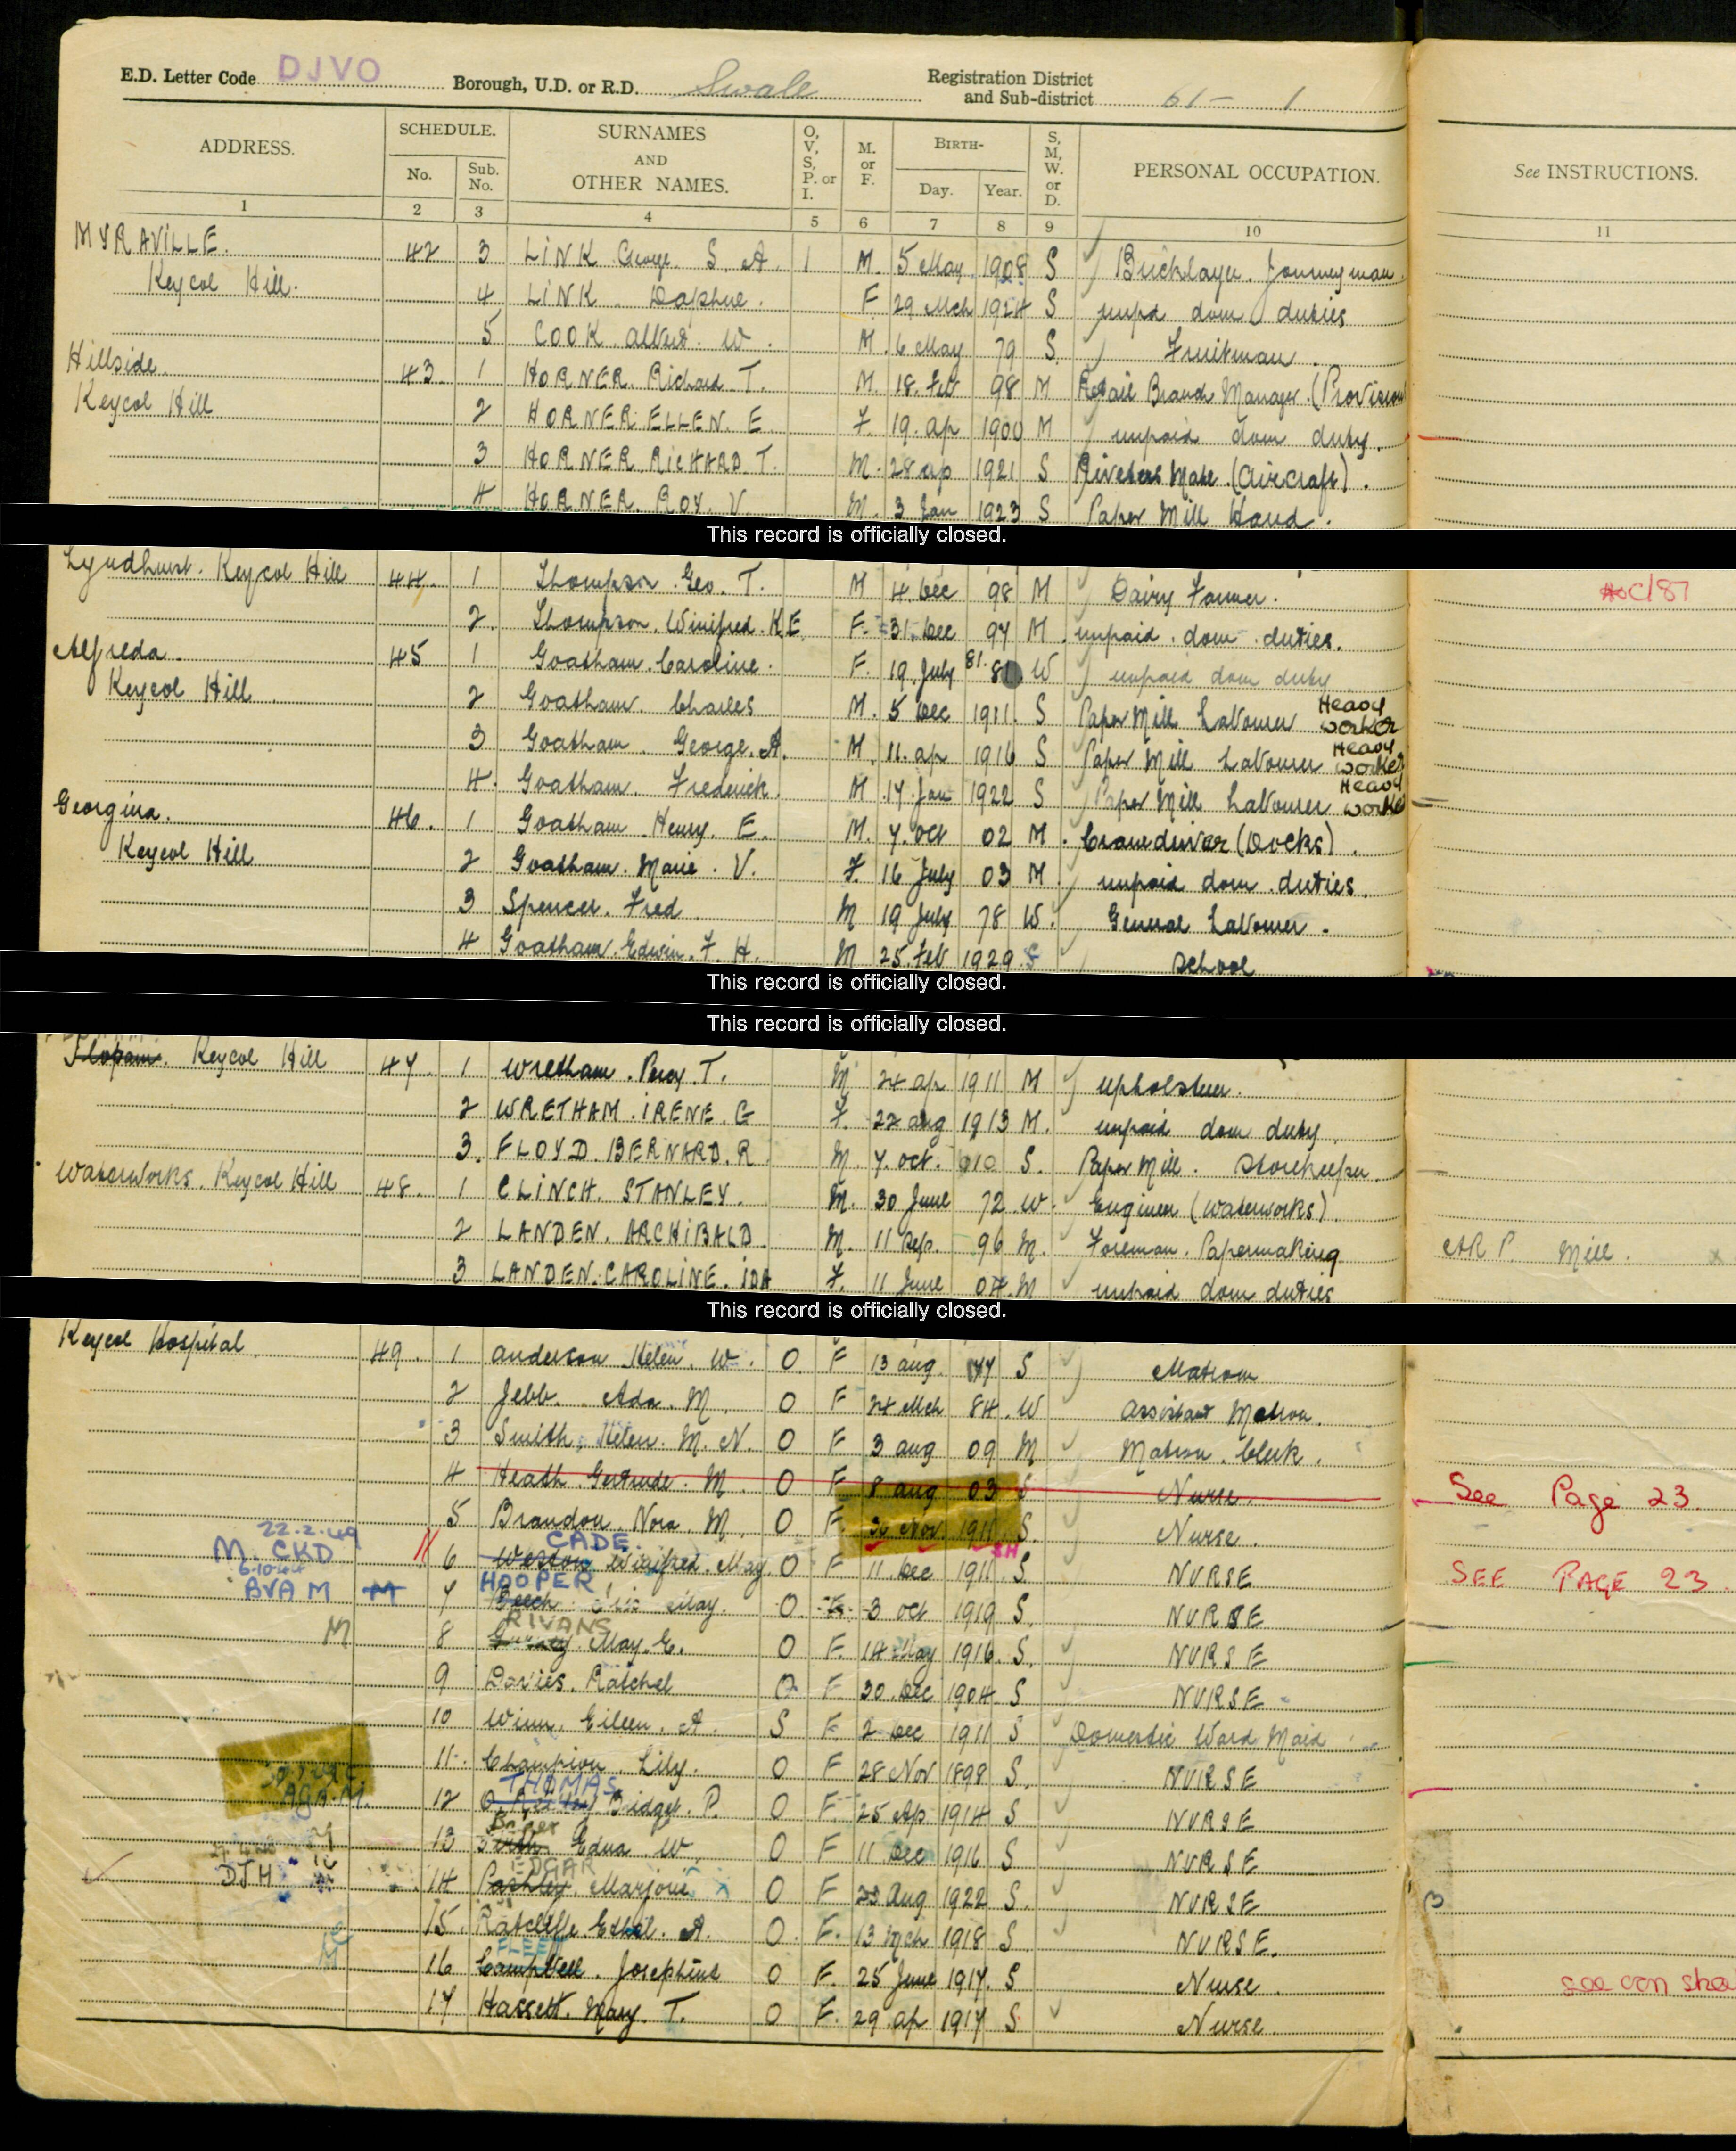 E.D. Letter Code DJVO Borough, U.D. or R.D. Swale Registration District and Sub-district 61- 1
ADDRESS. SCHEDULE. No. Sub. No. SURNAMES AND OTHER NAMES. O, V, S, P. or I. M. or F. BIRTH- Day. Year. S, M, W. or D. PERSONAL OCCUPATION. See INSTRUCTIONS.
1 2 3 4 5 6 7 8 9 10 11
MYRAVILLE. 42 3 LINK George S. A. 1 M. 5 May 1908 S Bricklayer. Journeyman.
Keycol Hill. 4 LINK. Daphne. F 29 Mch 1924 S unpd dom duties
5 COOK Albert W. M. 6 May 79 S. Fruitman.
Hillside 43. 1 HORNER Richard T. M. 18. Feb 98 M Retail Branch Manager. (Provision
Keycol Hill 2 HORNER ELLEN. E F. 19. ap 1900 M unpaid dom duty.
3 HORNER RICHARD T. M. 28 ap 1921 S Riveters Mate (Aircraft).
4 HORNER. ROY. V. M. 3 Jan 1923 S Paper Mill Hand.
This record is officially closed.
Lyndhurst. Keycol Hill 44. 1 Thompson Geo. T. M 4. Dec 98 M Dairy Farmer.
2. Thompson. Winifred. K.E F. 31. Dec 97 M. unpaid. dom. duties.
Alfreda. 45 1 Goatham. Caroline. F. 19. July 81. 81 W unpaid dom duty
Keycol Hill 2 Goatham. Charles M. 5 Dec 1911. S Paper Mill Labourer Heavy worker
3 Goatham. George. A. M. 11. ap 1916 S Paper Mill Labourer Heavy worker
4. Goatham. Frederick. M 17 Jan 1922 S Paper Mill Labourer Heavy worker
Georgina. 46. 1 Goatham Henry. E. M. 7. Oct 02 M. Cranedriver (Docks).
Keycol Hill 2 Goatham. Marie. V. F. 16 July 03 M. unpaid dom. duties.
3 Spencer. Fred M 19 July 78 W. General Labourer.
4 Goatham. Edwin. F. H. M 25. Feb 1929. S School
This record is officially closed.
This record is officially closed.
Keycol Hill 47. 1 Wretham. Percy. T. M 24 ap 1911 M upholsterer.
2 WRETHAM. IRENE. G F. 22 aug 1913 M. unpaid dom duty.
3. FLOYD. BERNARD. R M. 7. oct. 910 S. Paper Mill. Storekeeper.
Waterworks. Keycol Hill 48. 1 CLINCH. STANLEY. M. 30 June 72. W. Engineer (Waterworks).
2 LANDEN. ARCHIBALD. M. 11 Sep. 96 M. Foreman. Papermaking ARP. Mill.
3 LANDEN. CAROLINE. IDA F. 11 June 04. M unpaid dom duties
This record is officially closed.
Keycol Hospital 49. 1 Anderson Helen. W. O F 13 aug 77 S Matron
2 Jebb. Ada. M. O F 24 Mch 84. W Assistant Matron.
3 Smith, Helen. M. N. O F 3 aug 09 M Matron. Clerk.
4 Heath Gertrude. M. O F 8 aug 03 S Nurse. See Page 23.
5 Brandon. Nora. M. O. F. Nov 1911 S. Nurse.
22.2.49
M. CKD 6 CADE. Weston Winifred. May O F 11 Dec 1911. S NURSE SEE PAGE 23
BVA M M 7 HOOPER May. O. F. 3 oct 1919 S. NURSE
M 8 RIVANS May. E. O F. 14 May 1916. S. NURSE
9 Davies. Ratchel O F 30. Dec 1904. S NURSE
10 Winn. Eileen. A. S F. 2 Dec 1911 S Domestic Ward Maid
11. Champion. Lily. O F 28 Nov 1898 S. NURSE
12 THOMAS Bridget. P. O F 25 Ap 1914 S NURSE
13 Edna W. O F 11 Dec 1916 S NURSE
DJH 14 EDGAR Marjorie O F 23 Aug 1922 S. NURSE
15. Ratcliffe. Ethel. A. O. F. 13 Mch 1918 S NURSE.
16 FLEET Campbell. Josephine O F. 25 June 1917. S Nurse.
17 Hassett. Mary. T. O F. 29. ap 1917 S Nurse.